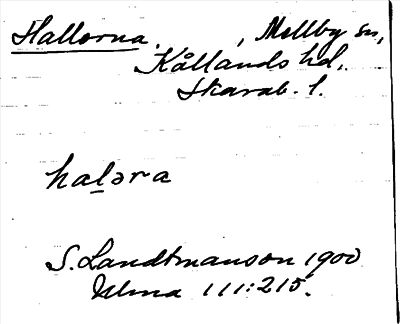 Hallorna. , Mellby sn,
Kållands hd.
Skarab. l.
halǝra
S. Landtmanson 1900
Ulma 111:215.